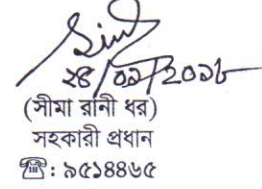 ২৪/০১/২০১৮
(সীমা রানী ধর)
সহকারী প্রধান
☎: ৯৫১৪৪৬৫